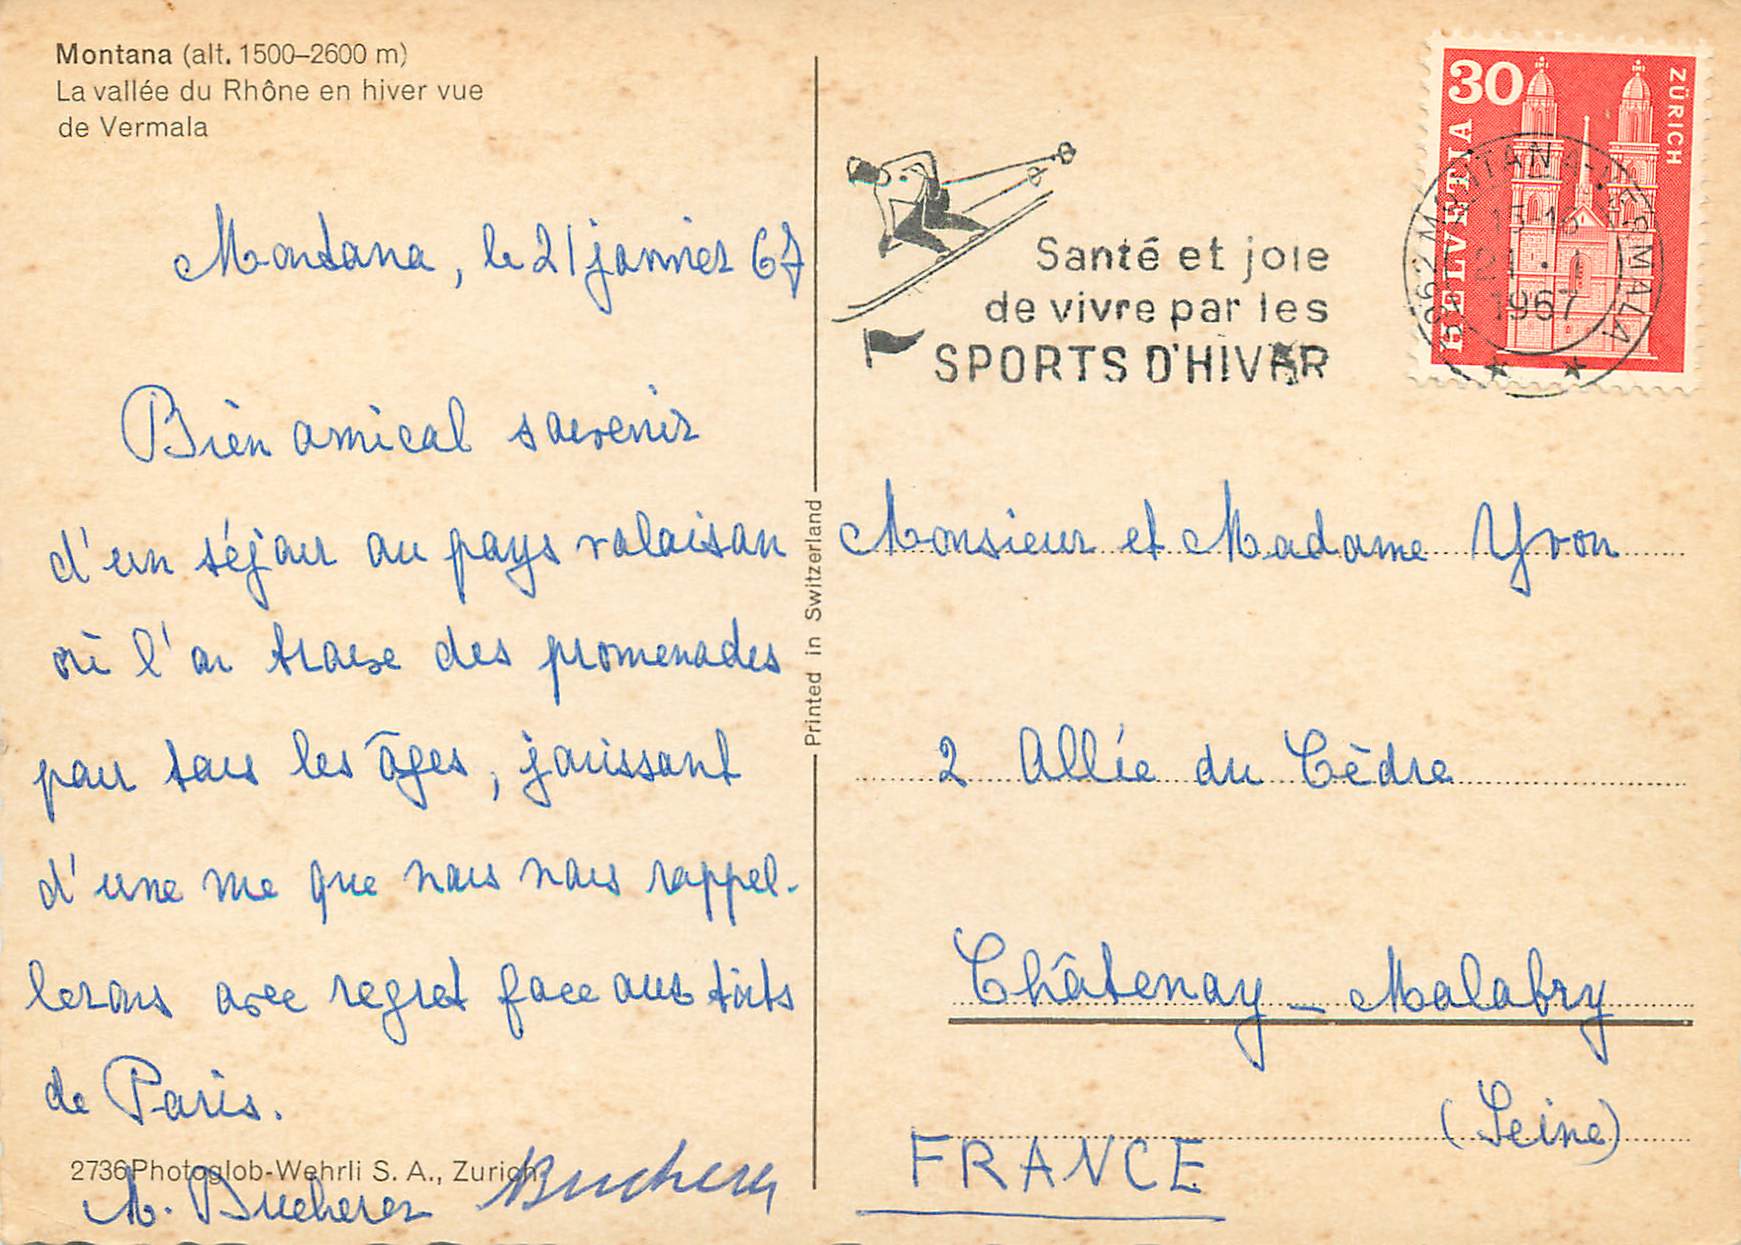 Montana (alt. 1500–2600 m)
La vallée du Rhône en hiver vue
de Vermala
Montana, le 21 janvier 67
Bien amical souvenir
d'un séjour au pays valaisan
où l'on trouve des promenades
pour tous les âges, jouissant
d'une vue que nous nous rappel-
lerons avec regret face aux toits
de Paris.
2736 Photoglob-Wehrli S. A., Zurich
M. Bucherer Bucherer
Printed in Switzerland
Santé et joie
de vivre par les
SPORTS D'HIVER
30
HELVETIA
ZÜRICH
3962 MONTANA-VERMALA
15-16
21.1
1967
Monsieur et Madame Yvon
2 Allée du Cèdre
Châtenay-Malabry
(Seine)
FRANCE